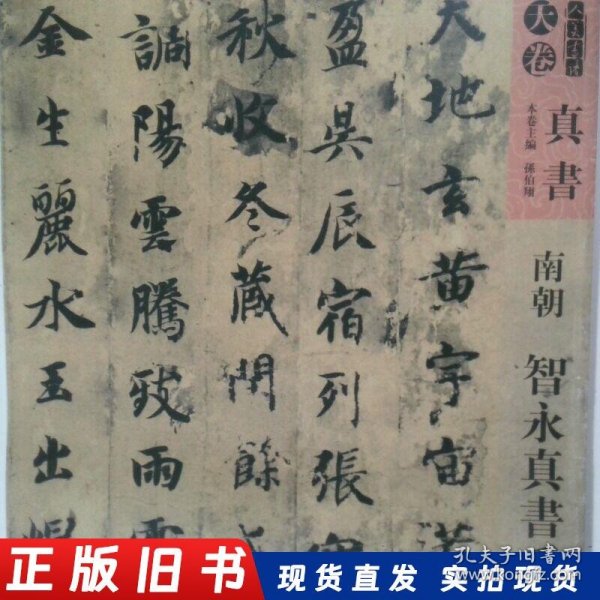 大卷
真書
本卷主編 孫伯翔
南朝 智永真書
天地玄黄宇宙
盈昃辰宿列張寒
秋收冬藏閏餘成
調陽雲騰致雨露
金生麗水玉出崐
正版旧书
现货直发 实拍现货
孔夫子旧书网
www.kongfz.com